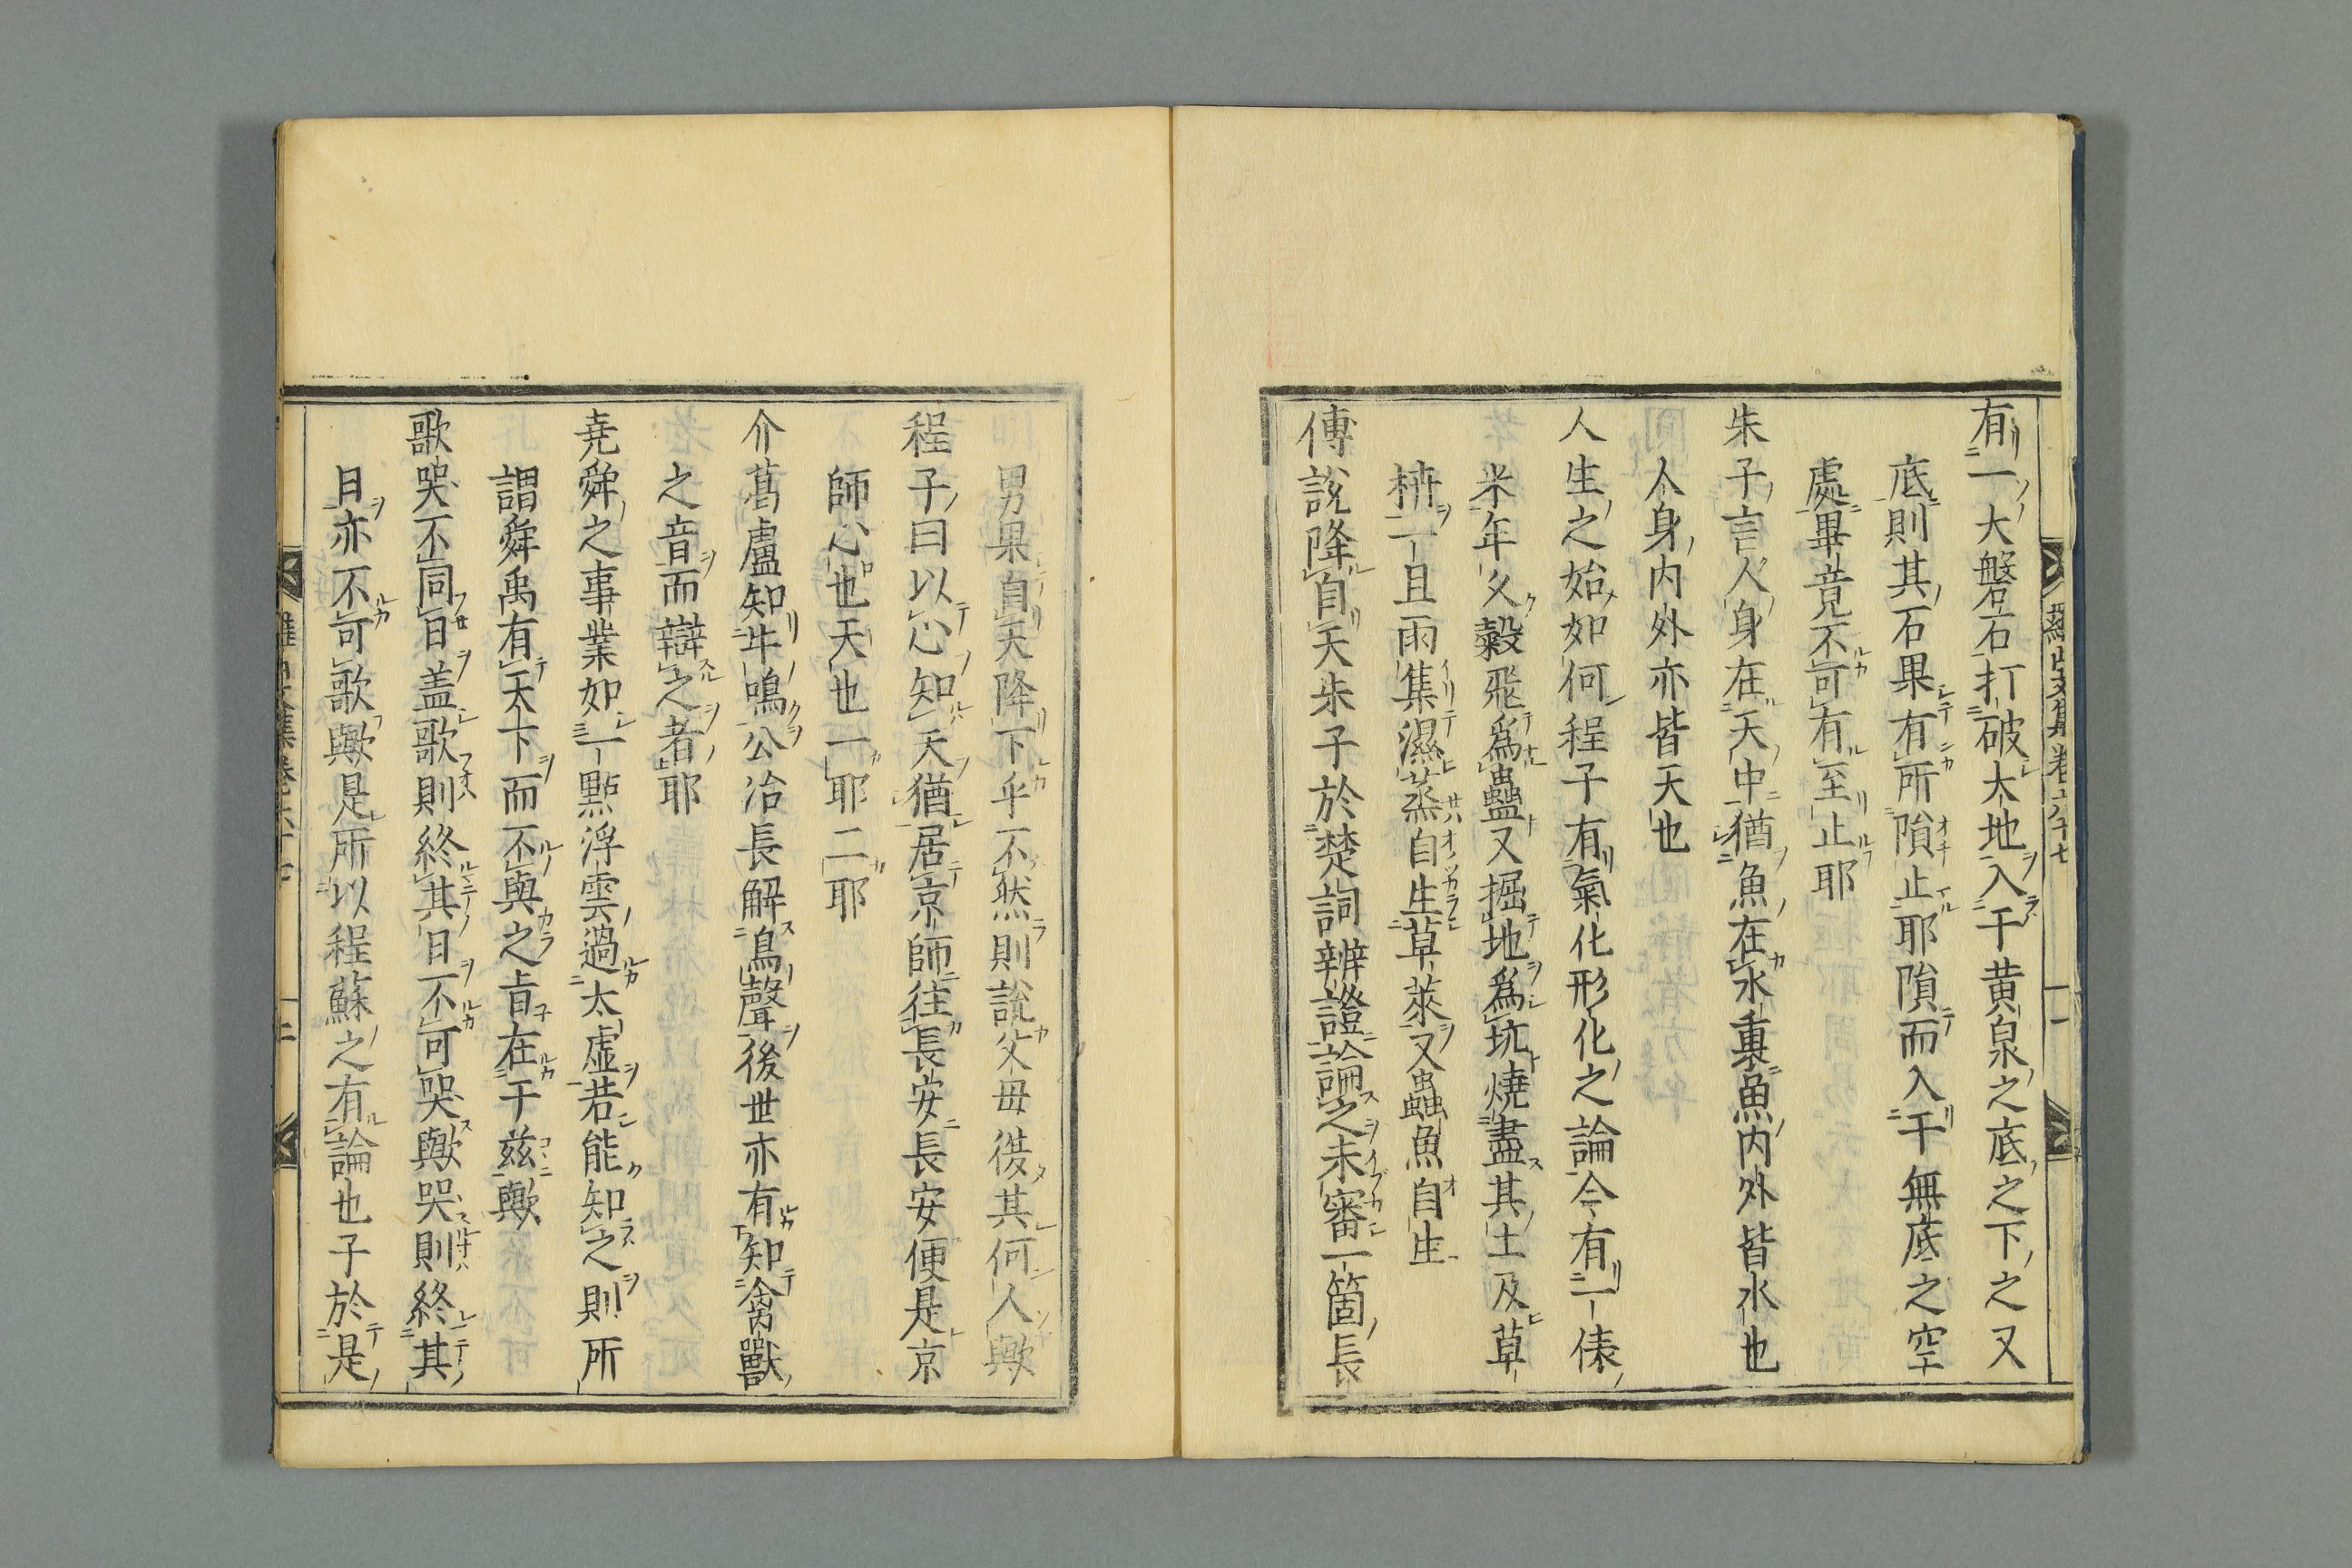 有一大磐石打破大地入于黄泉之底之下之又
底則其石果有所隕止耶隕而入于無底之空
處畢竟不可有至止耶
朱子言人身在天中猶魚在水裏魚内外皆水也
人身内外亦皆天也
人生之始如何程子有氣化形化之論今有一俵
米年久穀飛爲蠱又掘地爲坑燒盡其土及草
一旦雨集濕蒸自生草萊又蟲魚自生
傅說降自天朱子於楚詞辨證論之未審一箇長
男果自天降下乎不然則說父母從其何人歟
程子曰以心知天猶居京師往長安長安便是京
師心也天也一耶二耶
介葛盧知牛鳴公冶長解鳥聲後世亦有知禽獸
之音而辯之者耶
堯舜之事業如一點浮雲過太虛若能知之則所
謂舜禹有天下而不與之旨在于兹歟
歌哭不同日盖歌則終其日不可哭歟哭則終其
日亦不可歌歟是所以程蘇之有論也子於是
羅山文集卷六十七
十一